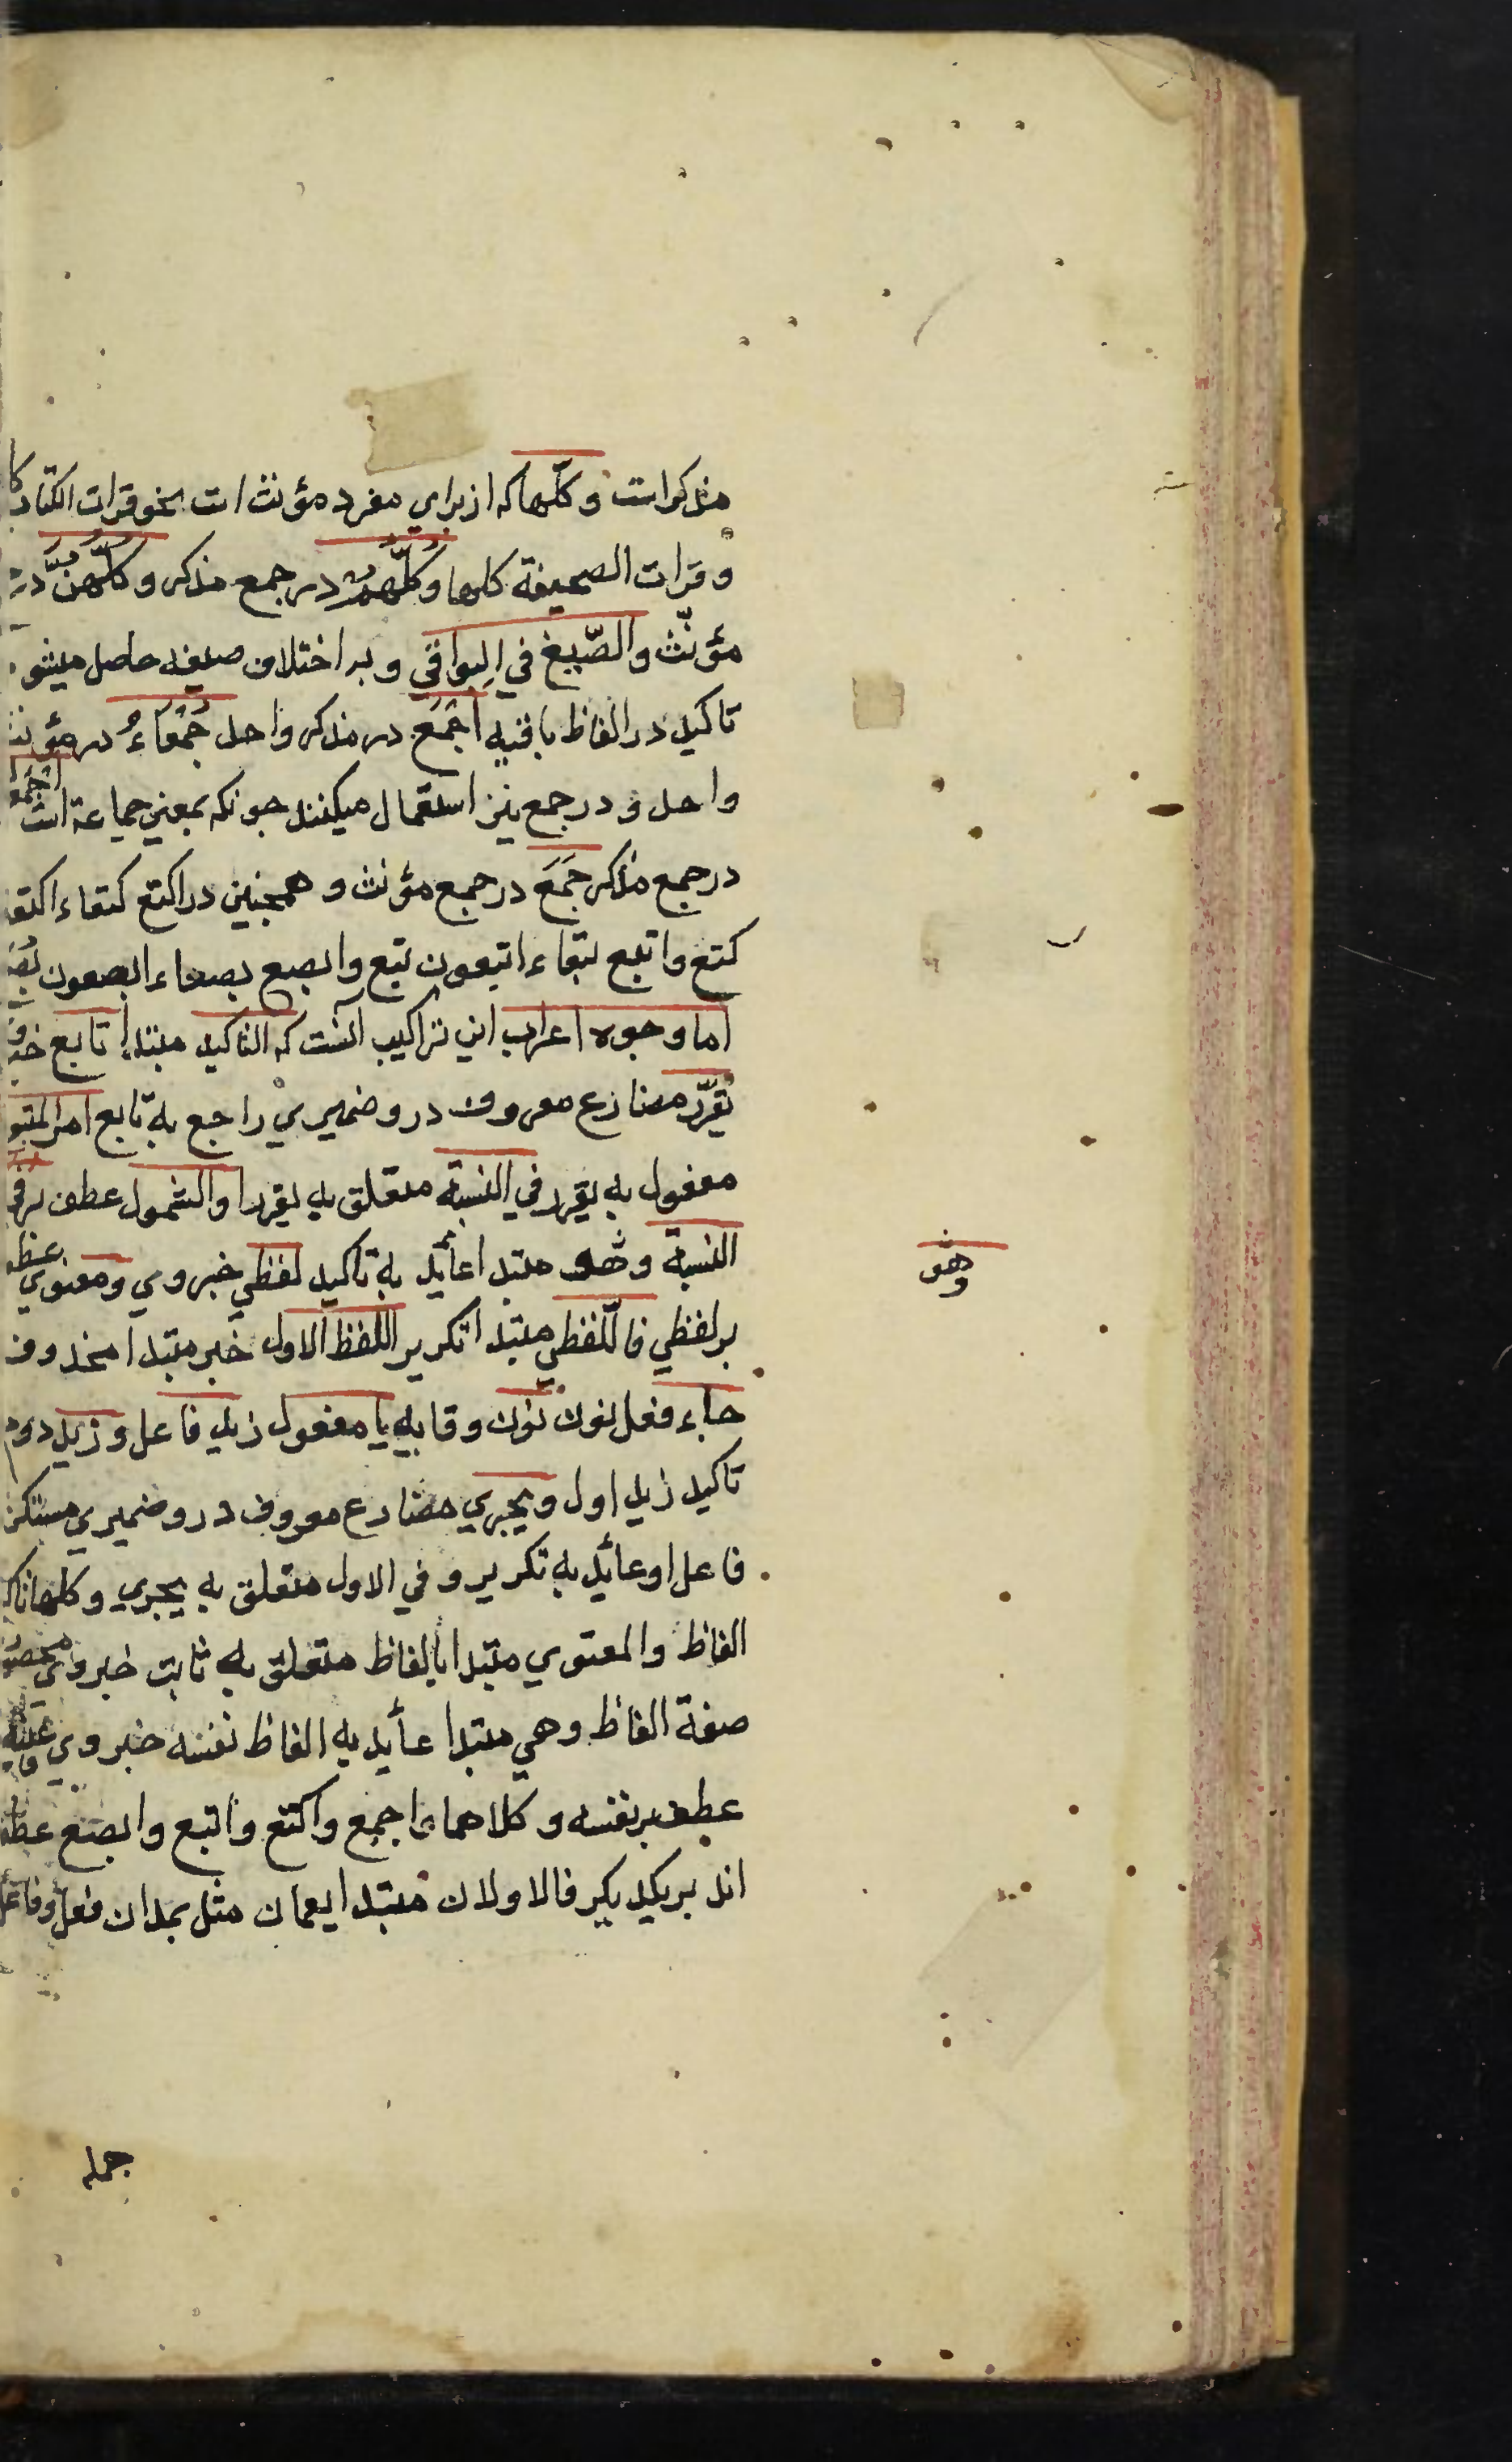 مذکراست وکلّها که از برای مفرد مؤنث است نحو قرات الکتاب
و قرات الصحیفة کلها وکلّهم در جمع مذکر و کلّهنّ در
مؤنّث والصّیغ فی البواقی و بر اختلاف صیغه حاصل میشو
تاکید در الفاظ باقیه اَجْمَعَ در مذکر واحد جَمْعَاءُ در مؤنث
واحد و در جمع نیز استعمال میکنند جونکه بمعنی جماعة است اجمع
در جمع مذکر جُمَعَ در جمع مؤنث و همجنین در اکتع کتعاء اکتعو
کتع و اتبع تبعاء اتبعون تبع و ابصع بصعاء ابصعون بصع
اما وجوه اعراب این تراکیب آنست که التاکید مبتدا تابع خبر
یقرّر مضارع معروف در و ضمیری راجع به تابع امر المتبو
مفعول به یقرر فی النسبة متعلق به یقرر او الشمول عطف بر فی
النسبة وهو مبتدا عائد به تاکید لفظی خبر وی و معنوی عطف
بر لفظی فاللّفظی مبتدا تکریر اللفظ الاول خبر مبتدا محذوف
جاء فعل نون نون وقایه یا مفعول زید فاعل و زید دوم
تاکید زید اول و یجری مضارع معروف درو ضمیری مستکن
فاعل او عائد به تکریر و فی الاول متعلق به یجری و کلها تاکید
الفاظ والمعنوی مبتدا بالفاظ متعلق به ثابت خبر وی محصور
صفة الفاظ وهی مبتدا عاید به الفاظ نفسه خبر وی عینه
عطف بر نفسه و کلاهما اجمع و اکتع و اتبع و ابصع عطف
اند بر یکدیکر فالاولان مبتدا یعمان مثل یمدان فعل وفاعل
وهو
جمله